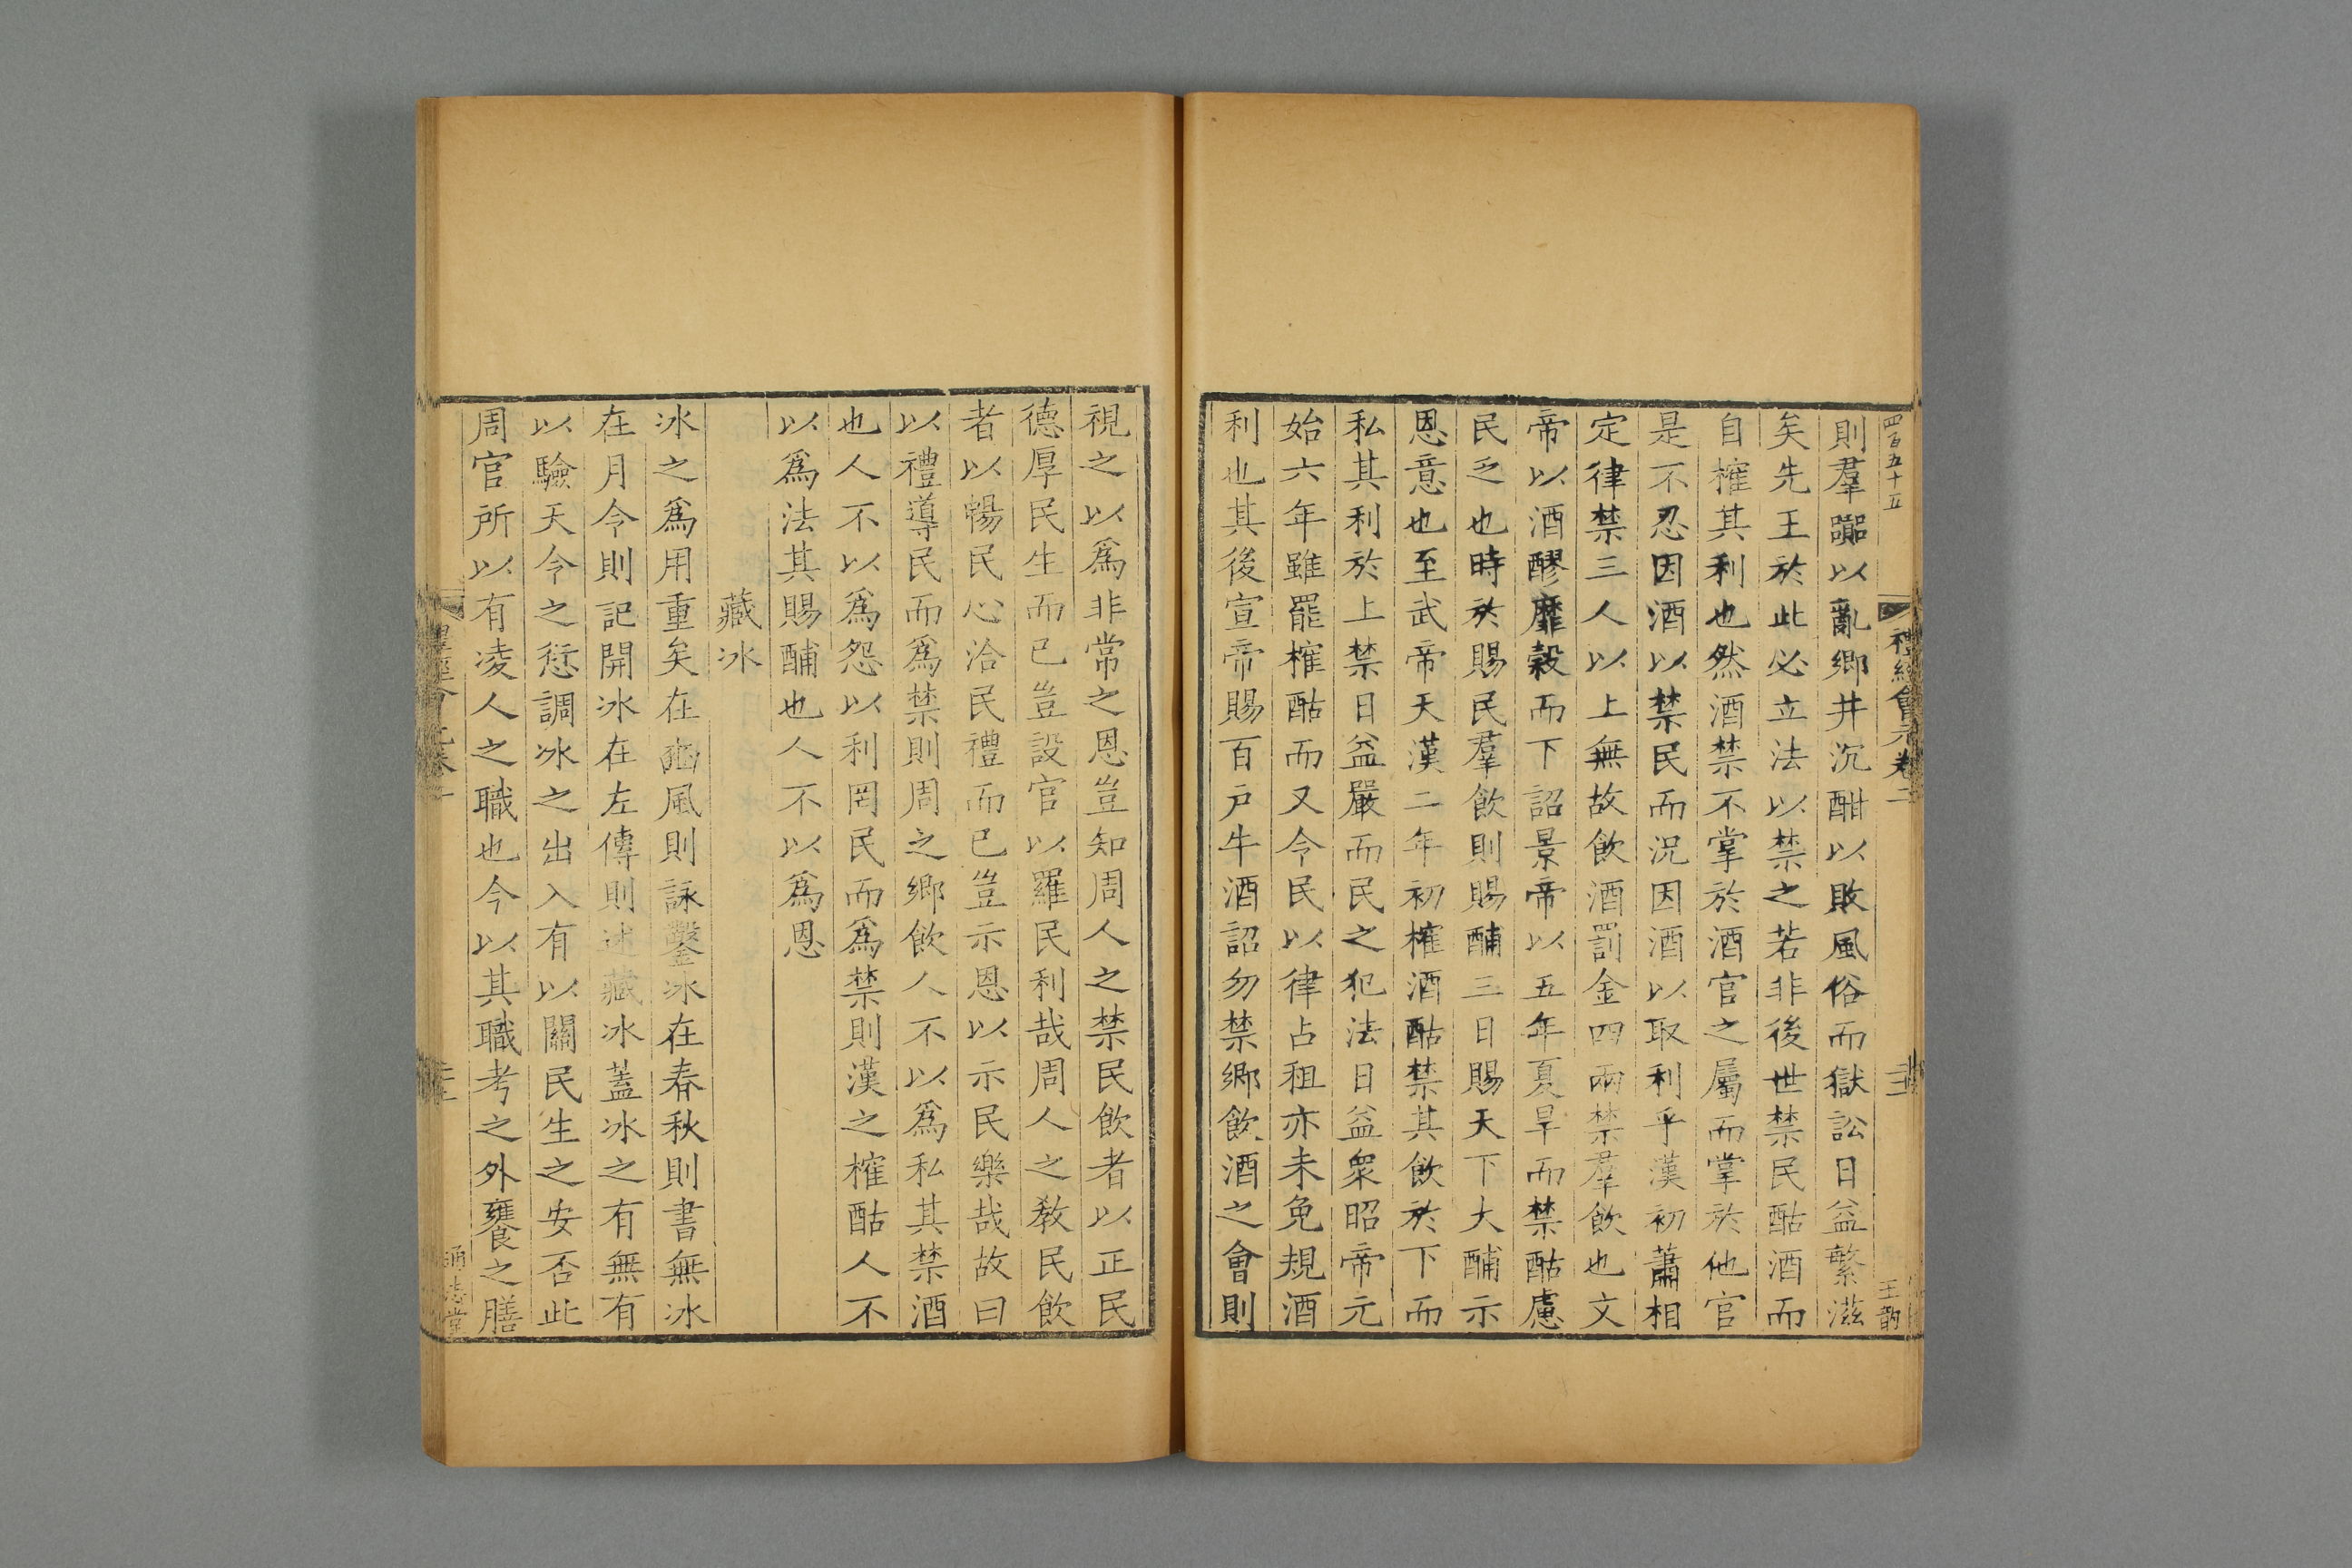 四百五十五
禮經會元卷二
三十
王韵
則羣嚻以亂鄉井沉酣以敗風俗而獄訟日益繁滋
矣先王於此必立法以禁之若非後世禁民酤酒而
自榷其利也然酒禁不掌於酒官之屬而掌於他官
是不忍因酒以禁民而況因酒以取利乎漢初蕭相
定律禁三人以上無故飲酒罰金四兩禁羣飲也文
帝以酒醪靡穀而下詔景帝以五年夏旱而禁酤慮
民乏也時於賜民羣飲則賜酺三日賜天下大酺示
恩意也至武帝天漢二年初榷酒酤禁其飲於下而
私其利於上禁日益嚴而民之犯法日益衆昭帝元
始六年雖罷榷酤而又令民以律占租亦未免規酒
利也其後宣帝賜百戶牛酒詔勿禁鄉飲酒之會則
視之以爲非常之恩豈知周人之禁民飲者以正民
德厚民生而已豈設官以羅民利哉周人之教民飲
者以暢民心洽民禮而已豈示恩以示民樂哉故曰
以禮導民而爲禁則周之鄉飲人不以爲私其禁酒
也人不以爲怨以利罔民而爲禁則漢之榷酤人不
以爲法其賜酺也人不以爲恩
藏冰
冰之爲用重矣在豳風則詠鑿冰在春秋則書無冰
在月令則記開冰在左傳則述藏冰蓋冰之有無有
以驗天令之愆調冰之出入有以關民生之安否此
周官所以有凌人之職也今以其職考之外饔之膳
通志堂